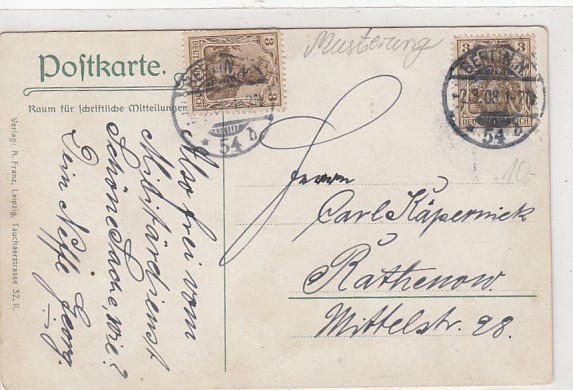 Postkarte.
Raum für schriftliche Mitteilungen
Also frei vom
Militärdienst
Schöne Sache, wie?
Dein Neffe Georg.
Musterung
Herrn
Carl Käpernick
Rathenow.
Mittelstr. 28.
3 3
BERLIN.N.
54 b
3 3
BERLIN.N.
2.3.08.
* 54 b
10-
Verlag: R. Franz, Leipzig, Tauchaerstrasse 32, II.